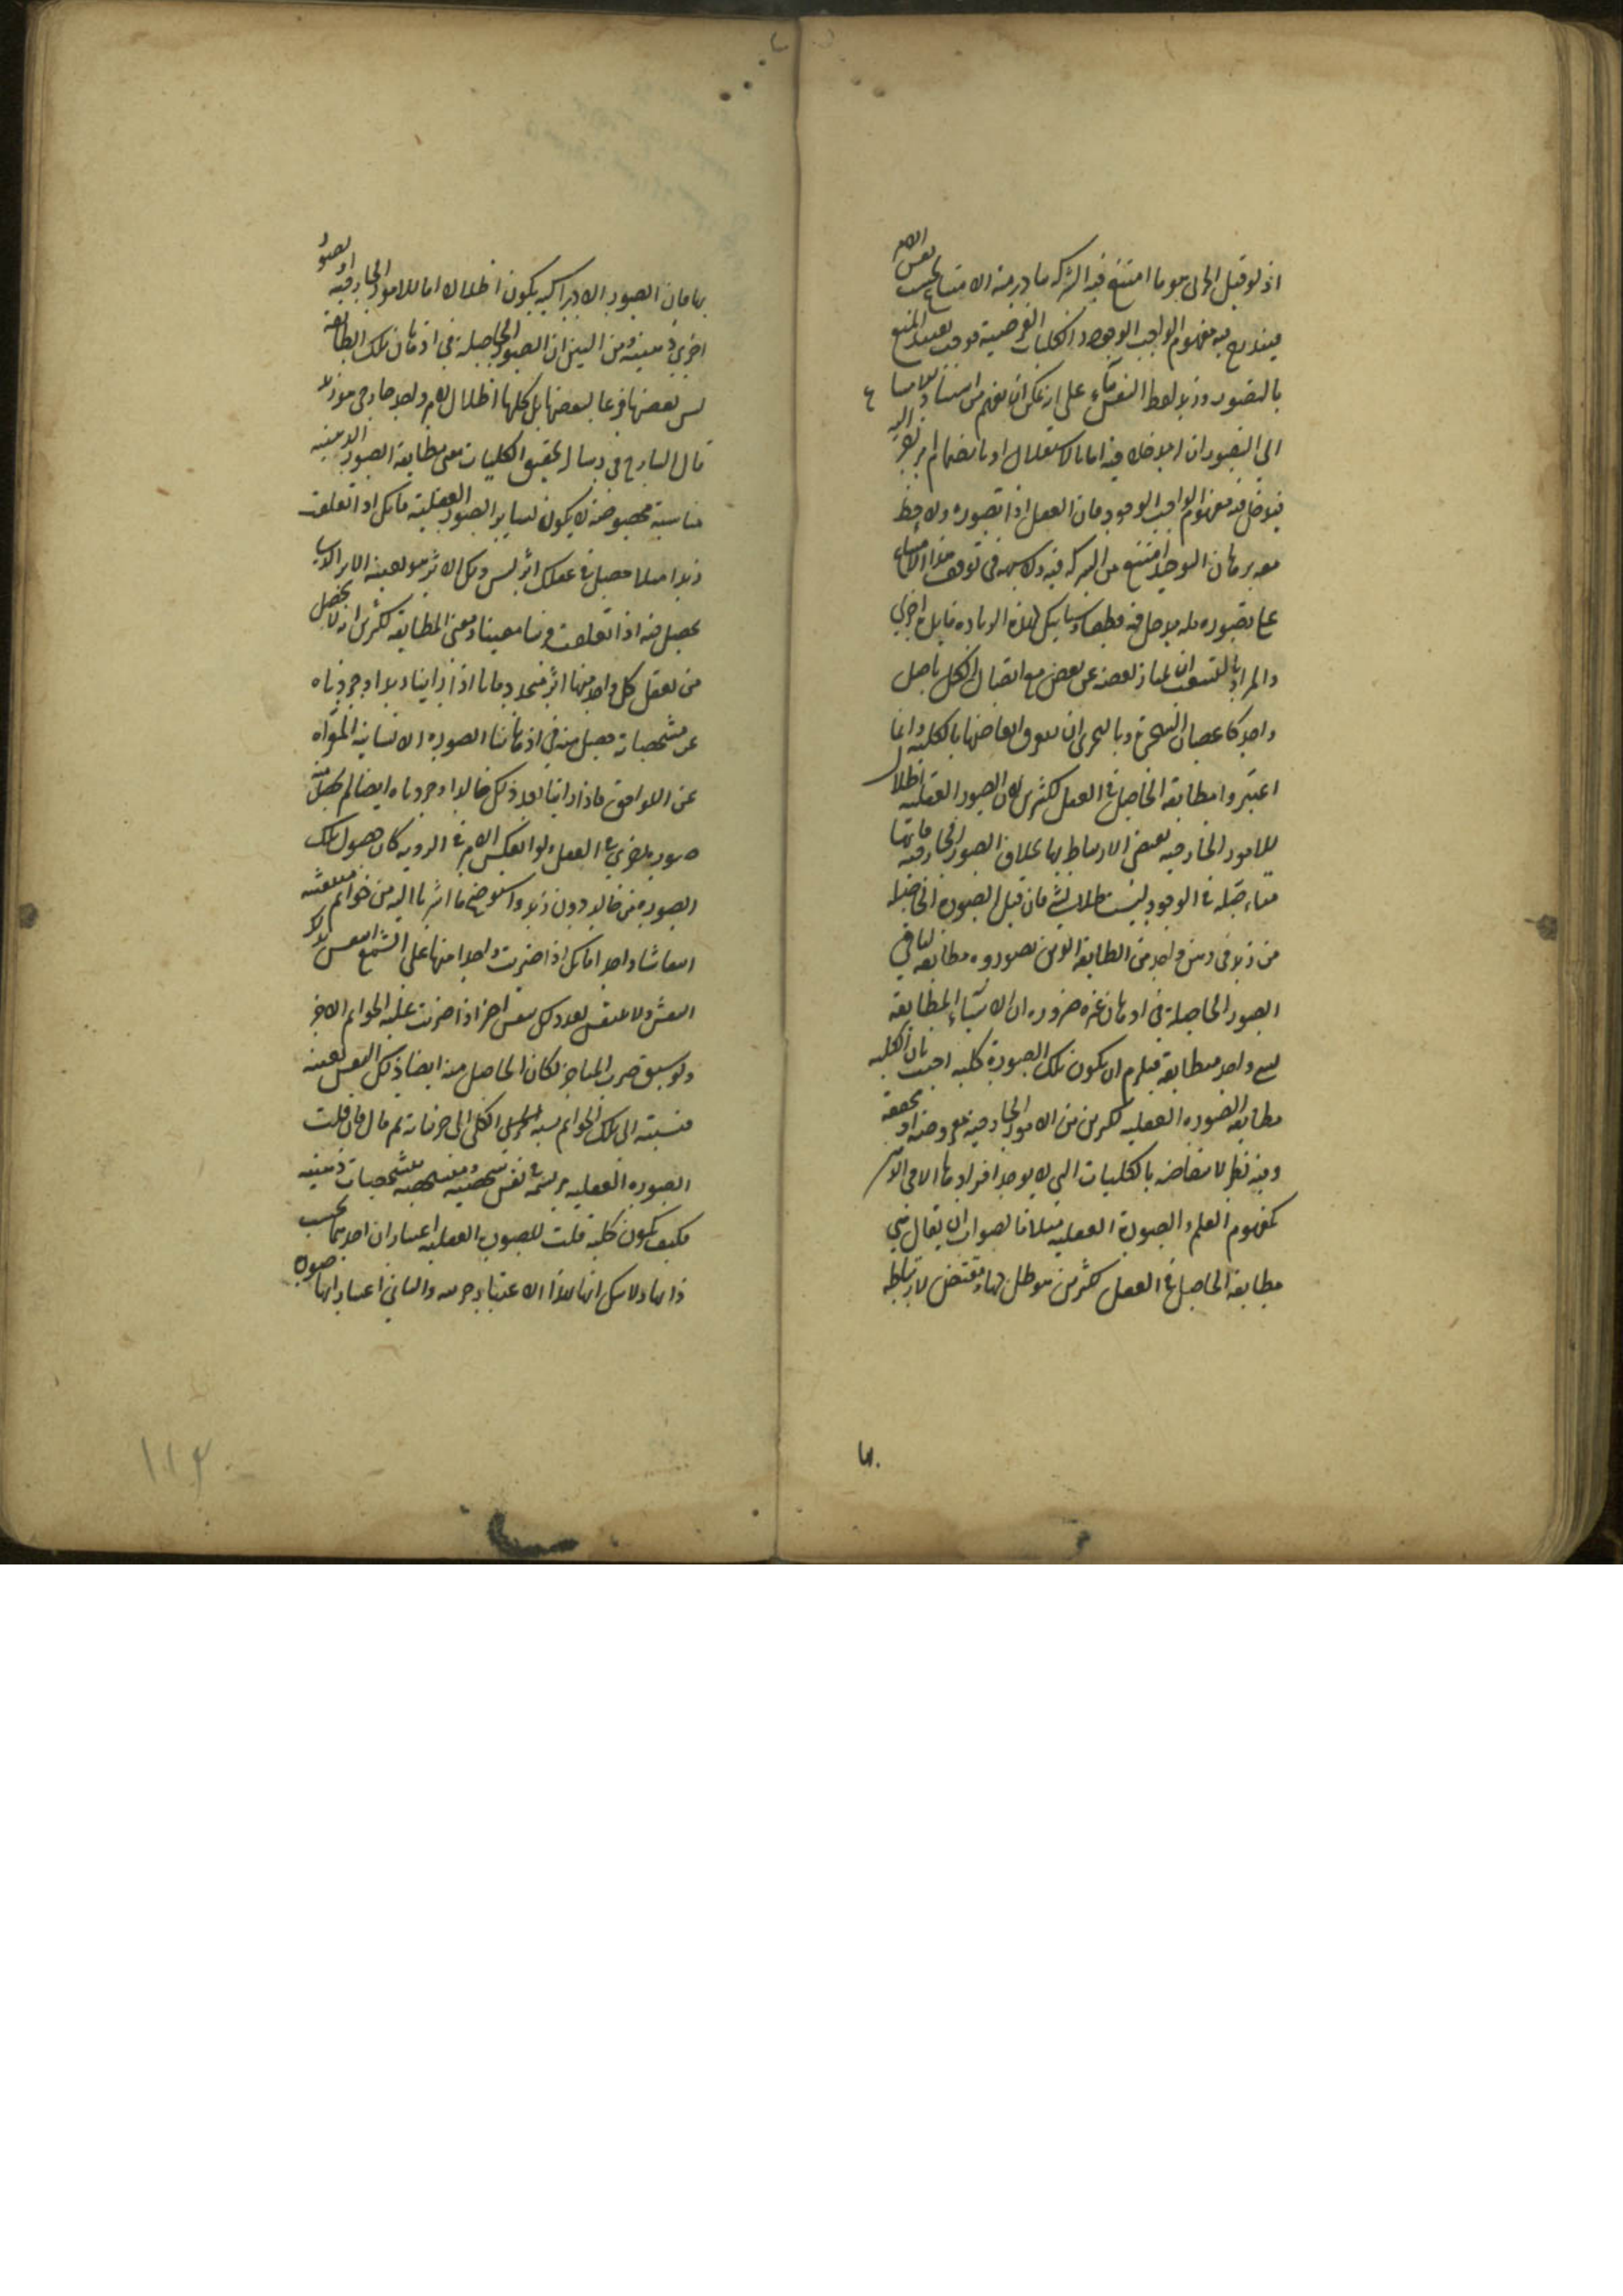 اذ لو قيل الجزئي هو ما امتنع فيه الشركة تبادر منه الامتناع بحسب نفس الامر
فيندرج فيه مفهوم الواجب الوجود والكليات الفرضية فوجب تقييد المنع
بالتصور وزيد لفظ النفس على انه يمكن ان يفهم من اسناد الامتناع
الى التصور ان له مدخلا فيه اما بالاستقلال او بانضمام امر اخر اليه
فيدخل فيه مفهوم الواجب الوجود فان العقل اذا تصوره ولاحظ
معه برهان التوحيد امتنع من الشركة فيه ولا شبهة في توقف هذا الامتناع
على تصوره فله مدخل فيه قطعا
والمراد بالتشعب ان يمتاز بعضه عن بعض مع اتصال الكل باصل
واحد كاغصان الشجرة وبالتجزي ان تتفرق ابعاضها بالكلية وانما
اعتبروا مطابقة الحاصل في العقل لكثيرين لان الصور العقلية اظلال
للامور الخارجية بعض الارتباط بها بخلاف الصور الخارجية فانها
متاصلة في الوجود ليست ظلا لشيء فان قيل الصورة الحاصلة
من زيد في ذهن واحد من الطائفة الذين تصوروه مطابقة لباقي
الصور الحاصلة في اذهان غيره ضرورة ان الاشياء المطابقة
لشيء واحد متطابقة فيلزم ان يكون تلك الصورة كلية اجيب بان الكلية
مطابقة الصورة العقلية لكثيرين من الامور الخارجية
وفيه نظر لانتقاضه بالكليات التي لا يوجد افرادها الا في الذهن
كمفهوم العلم والصورة العقلية مثلا فالصواب ان يقال هي
مطابقة الحاصل في العقل لكثيرين هو ظل لها ومقتض لارتباطه
بها
بها فان الصور الادراكية يكون اظلالا اما للامور الخارجية او لصور
اخرى ذهنية ومن البين ان الصور الحاصلة في اذهان تلك الطائفة
ليس بعضها فرعا لبعضها بل كلها اظلال لامر واحد خارجي هو زيد
قال الشارح في رسالة تحقيق الكليات معنى مطابقة الصور الذهنية
مناسبة مخصوصة لا يكون لساير الصور العقلية فانك اذا تعقلت
زيدا مثلا حصل في عقلك اثر ليس ذلك الاثر هو بعينه الاثر الذي
يحصل فيه اذا تعقلت فرسا معينا ومعنى المطابقة لكثيرين انه لا يحصل
من تعقل كل واحد منها اثر متجدد فانا اذا راينا زيدا وجردناه
عن مشخصاته حصل منه في اذهاننا الصورة الانسانية المعراة
عن اللواحق فاذا راينا بعد ذلك خالدا وجردناه ايضا لم يحصل منه
صورة اخرى في العقل ولو انعكس الامر في الرؤية كان حصول تلك
الصورة من خالد دون زيد واستوضح ما اشرنا اليه من خواتم منتقشة
انتقاشا واحدا فانك اذا ضربت واحدا منها على الشمع انتقش بذلك
النقش ولا ينتقش بعد ذلك بنقش اخر اذا ضربت عليه الخواتم الاخر
ولو سبق ضرب المتاخر لكان الحاصل منه ايضا ذلك النقش بعينه
فنسبته الى تلك الخواتم نسبة الكلي الى جزئياته ثم قال فان قلت
الصورة العقلية مرتسمة في نفس شخصية ومتشخصة بتشخصات ذهنية
فكيف تكون كلية قلت للصورة العقلية اعتباران احدهما بحسب
ذاتها ولا شك انها بهذا الاعتبار جزئية والثاني اعتبار انها صورة
١١٤